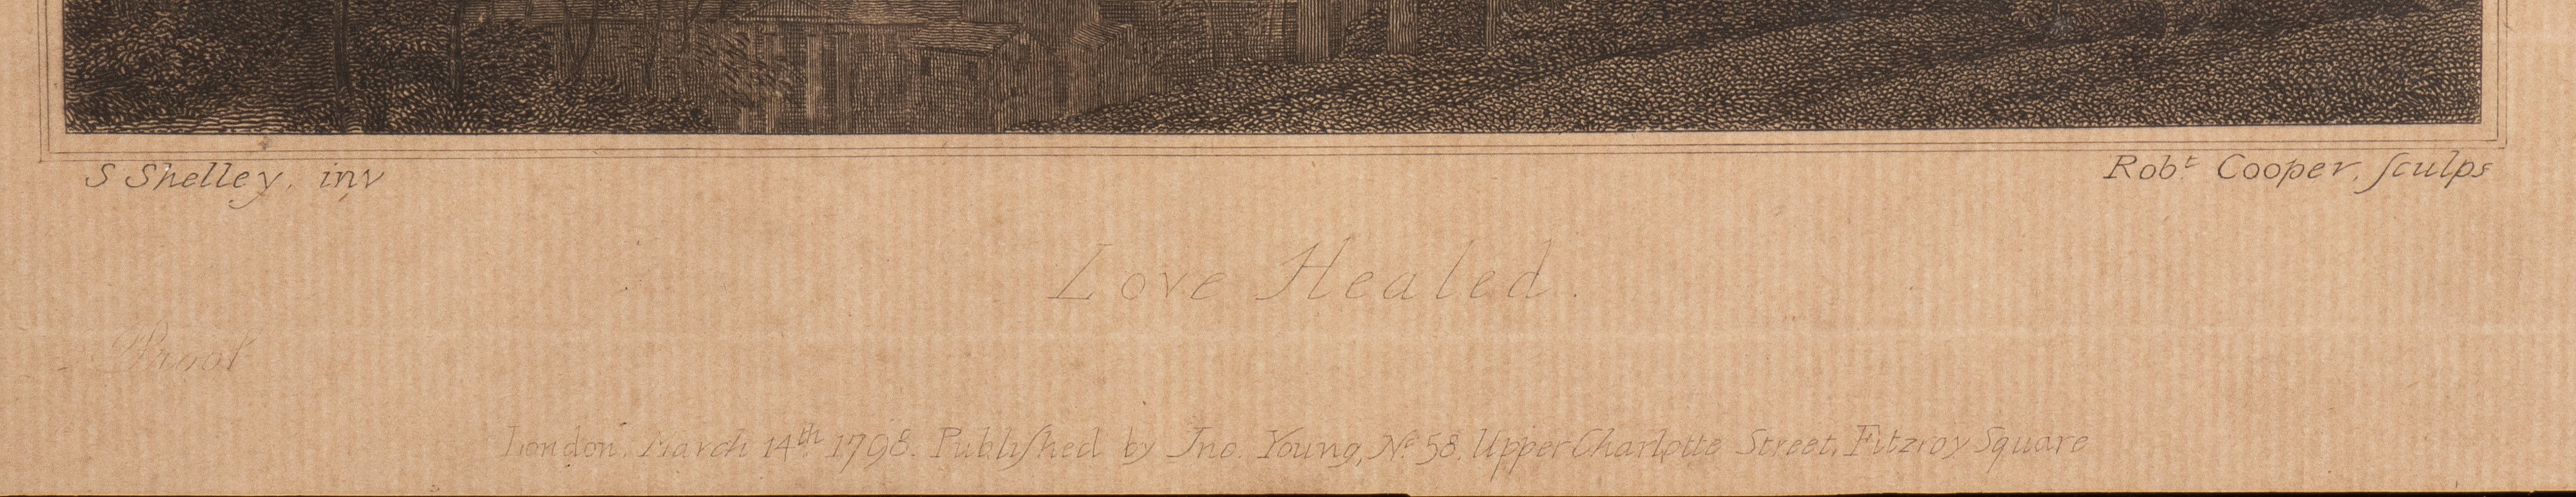 S Shelley. inv
Robᵗ Cooper, ſculps
Love Healed.
Proof
London, March 14ᵗʰ 1798. Publiſhed by Jno. Young, Nº 58, Upper Charlotte Street, Fitzroy Square